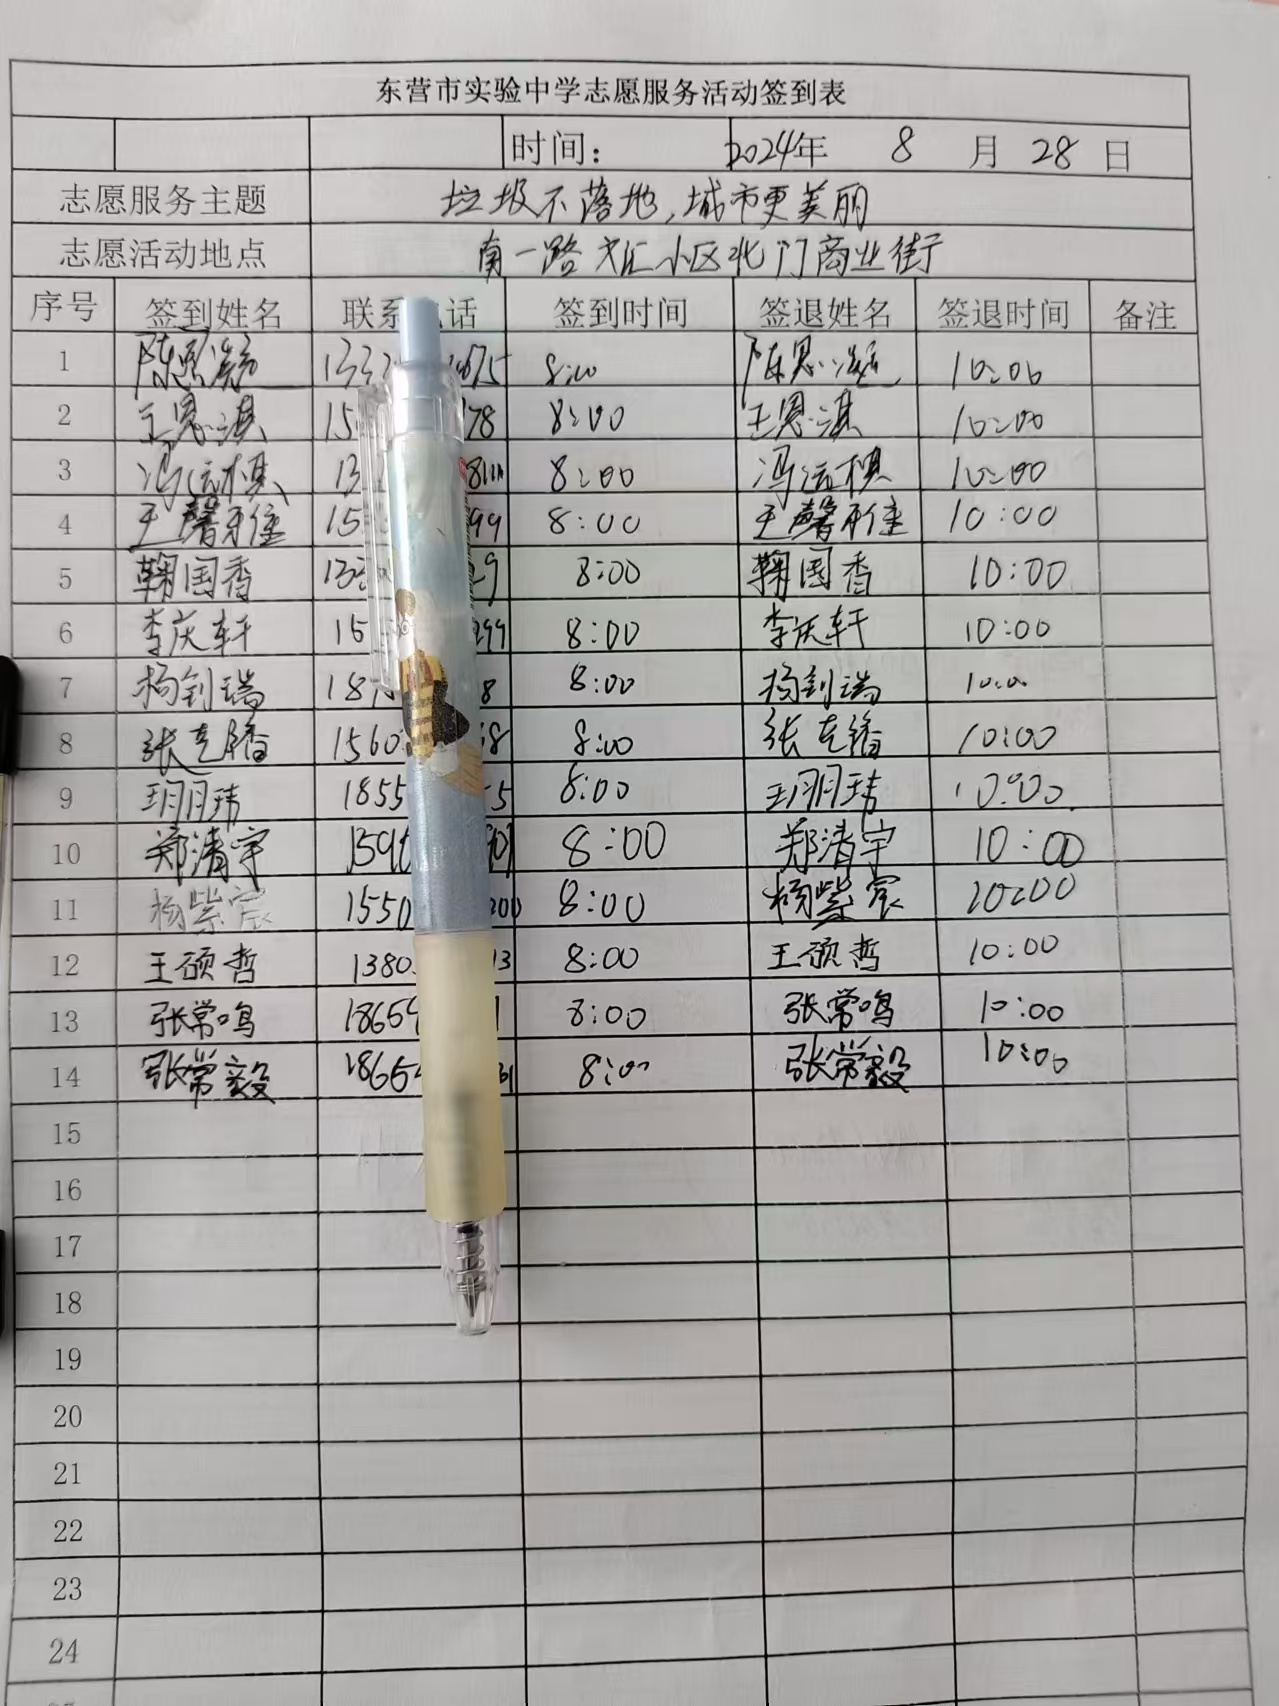 东营市实验中学志愿服务活动签到表
时间: 2024年 8 月 28 日
志愿服务主题 垃圾不落地,城市更美丽
志愿活动地点 南一路文汇小区北门商业街
序号 签到姓名 联系 话 签到时间 签退姓名 签退时间 备注
1 陈思凝 8:00 陈思凝 10:00
2 王思淇 15 78 8:00 王思淇 10:00
3 冯运棋 13 8:00 冯运棋 10:00
4 王馨雅 15 99 8:00 王馨雅 10:00
5 鞠国香 133 29 8:00 鞠国香 10:00
6 李庆轩 15 299 8:00 李庆轩 10:00
7 杨钊瑞 18 8 8:00 杨钊瑞 10:00
8 张克 1560 8 8:00 张克 10:00
9 王玥玮 1855 5 8:00 王玥玮 10:00
10 郑清宇 1590 8:00 郑清宇 10:00
11 杨紫宸 1550 200 8:00 杨紫宸 10:00
12 王硕哲 1380 13 8:00 王硕哲 10:00
13 张常鸣 1865 1 8:00 张常鸣 10:00
14 张常毅 1865 8:00 张常毅 10:00
15
16
17
18
19
20
21
22
23
24